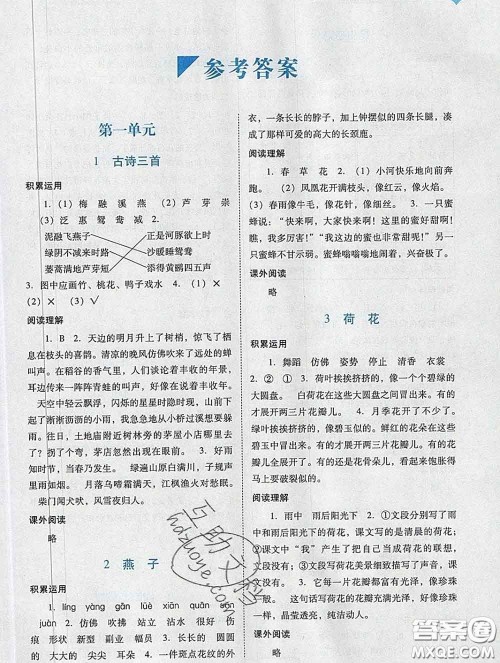 参考答案
第一单元
1 古诗三首
积累运用
1. (1) 梅 融 溪 燕 (2) 芦 芽 崇
(3) 泛 惠 鸳 鸯 减 2.
泥融飞燕子 正是河豚欲上时
绿阴不减来时路 沙暖睡鸳鸯
蒌蒿满地芦芽短 添得黄鹂四五声
3. 图中应画竹、桃花、鸭子戏水 4. (1)×
(2)× (3)√
阅读理解
1. B 2. 天边的明月升上了树梢，惊飞了栖
息在枝头的喜鹊。清凉的晚风仿佛吹来了远处的蝉
叫声。在稻谷的香气里，人们谈论着丰收的年景，
耳边传来一阵阵青蛙的叫声，好像在说着丰收年。
天空中轻云飘浮，闪烁的星星时隐时现，山前下起
了淅淅沥沥的小雨，我急急地从小桥过溪想要躲
雨。往日，土地庙附近树林旁的茅屋小店哪里去了
？拐了个弯，茅店忽然出现在眼前。 3. 好雨知
时节，当春乃发生。 绿遍山原白满川，子规声
里雨如烟。 月落乌啼霜满天，江枫渔火对愁眠。
柴门闻犬吠，风雪夜归人。
课外阅读
略
2 燕 子
积累运用
1. líng yàng gǎn lüè xiān quān sǎn
jù 2. 仿佛 吹拂 站立 沾水 很好 伤
痕 形状 新型 副业 一幅 3. 长长的 圆圆
的 大大的 尖尖 耳朵 4. 一件斑点花纹的外
衣，一条长长的脖子，加上钟摆似的四条长腿，凑成
了那样可爱的高大的长颈鹿。
阅读理解
1. 春 草 花 2. (1) 小河快乐地向前奔
跑。 (2) 凤凰花开满枝头，像红云，像火焰。
(3) 春雨像牛毛，像花针，像细丝。 3. 一只蜜
蜂说：“快来啊，大家快来啊！这里的蜜好甜啊！
瞧，我多厉害！”“我这边的蜜也非常甜呢！”另一
只蜜蜂不甘示弱。蜜蜂嗡嗡嗡地闹着，兴奋极了。
课外阅读
略
3 荷 花
积累运用
1. 舞蹈 仿佛 姿势 停止 清香 衣裳
2. ② ① 3. 荷叶挨挨挤挤的，像一个个碧绿的
大圆盘。 白荷花在这些大圆盘之间冒出来。有的
才展开两三片花瓣儿。 4. 月季花开了不少了。
碧绿的叶子挨挨挤挤的，像玉佩似的。鲜红的花朵从
这些玉佩中冒出来。有的才展开两三片花瓣儿。有
的花瓣儿全展开了。有的还是花骨朵儿，看起来饱
胀得马上要破裂似的。
阅读理解
1. 雨中 雨后阳光下 2. ①文段分别写了雨
中和雨后阳光下的荷花；课文写的是清晨的荷花；
②课文中“我”产生了把自己当成荷花的联想，
文段没有；③文段将荷花美景细致描写了声音，课
文没有。 3. 每一片花瓣都非常有光泽，像珍珠
一般。 这句话写荷花的花瓣充满光泽，好像珍珠
一样，晶莹透亮，完美无瑕。
课外阅读
略
互助文档
hdzuoye.com
答案圈
MXQE.COM